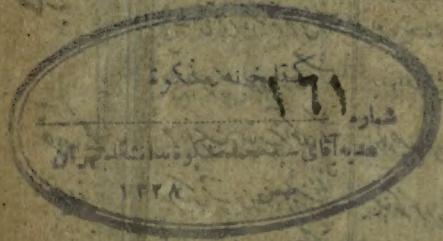 کتابخانه مشکوة
شماره ١٦١
هدیه آقای سید محمد مشکوة بدانشگاه تهران
۱۳۲۸